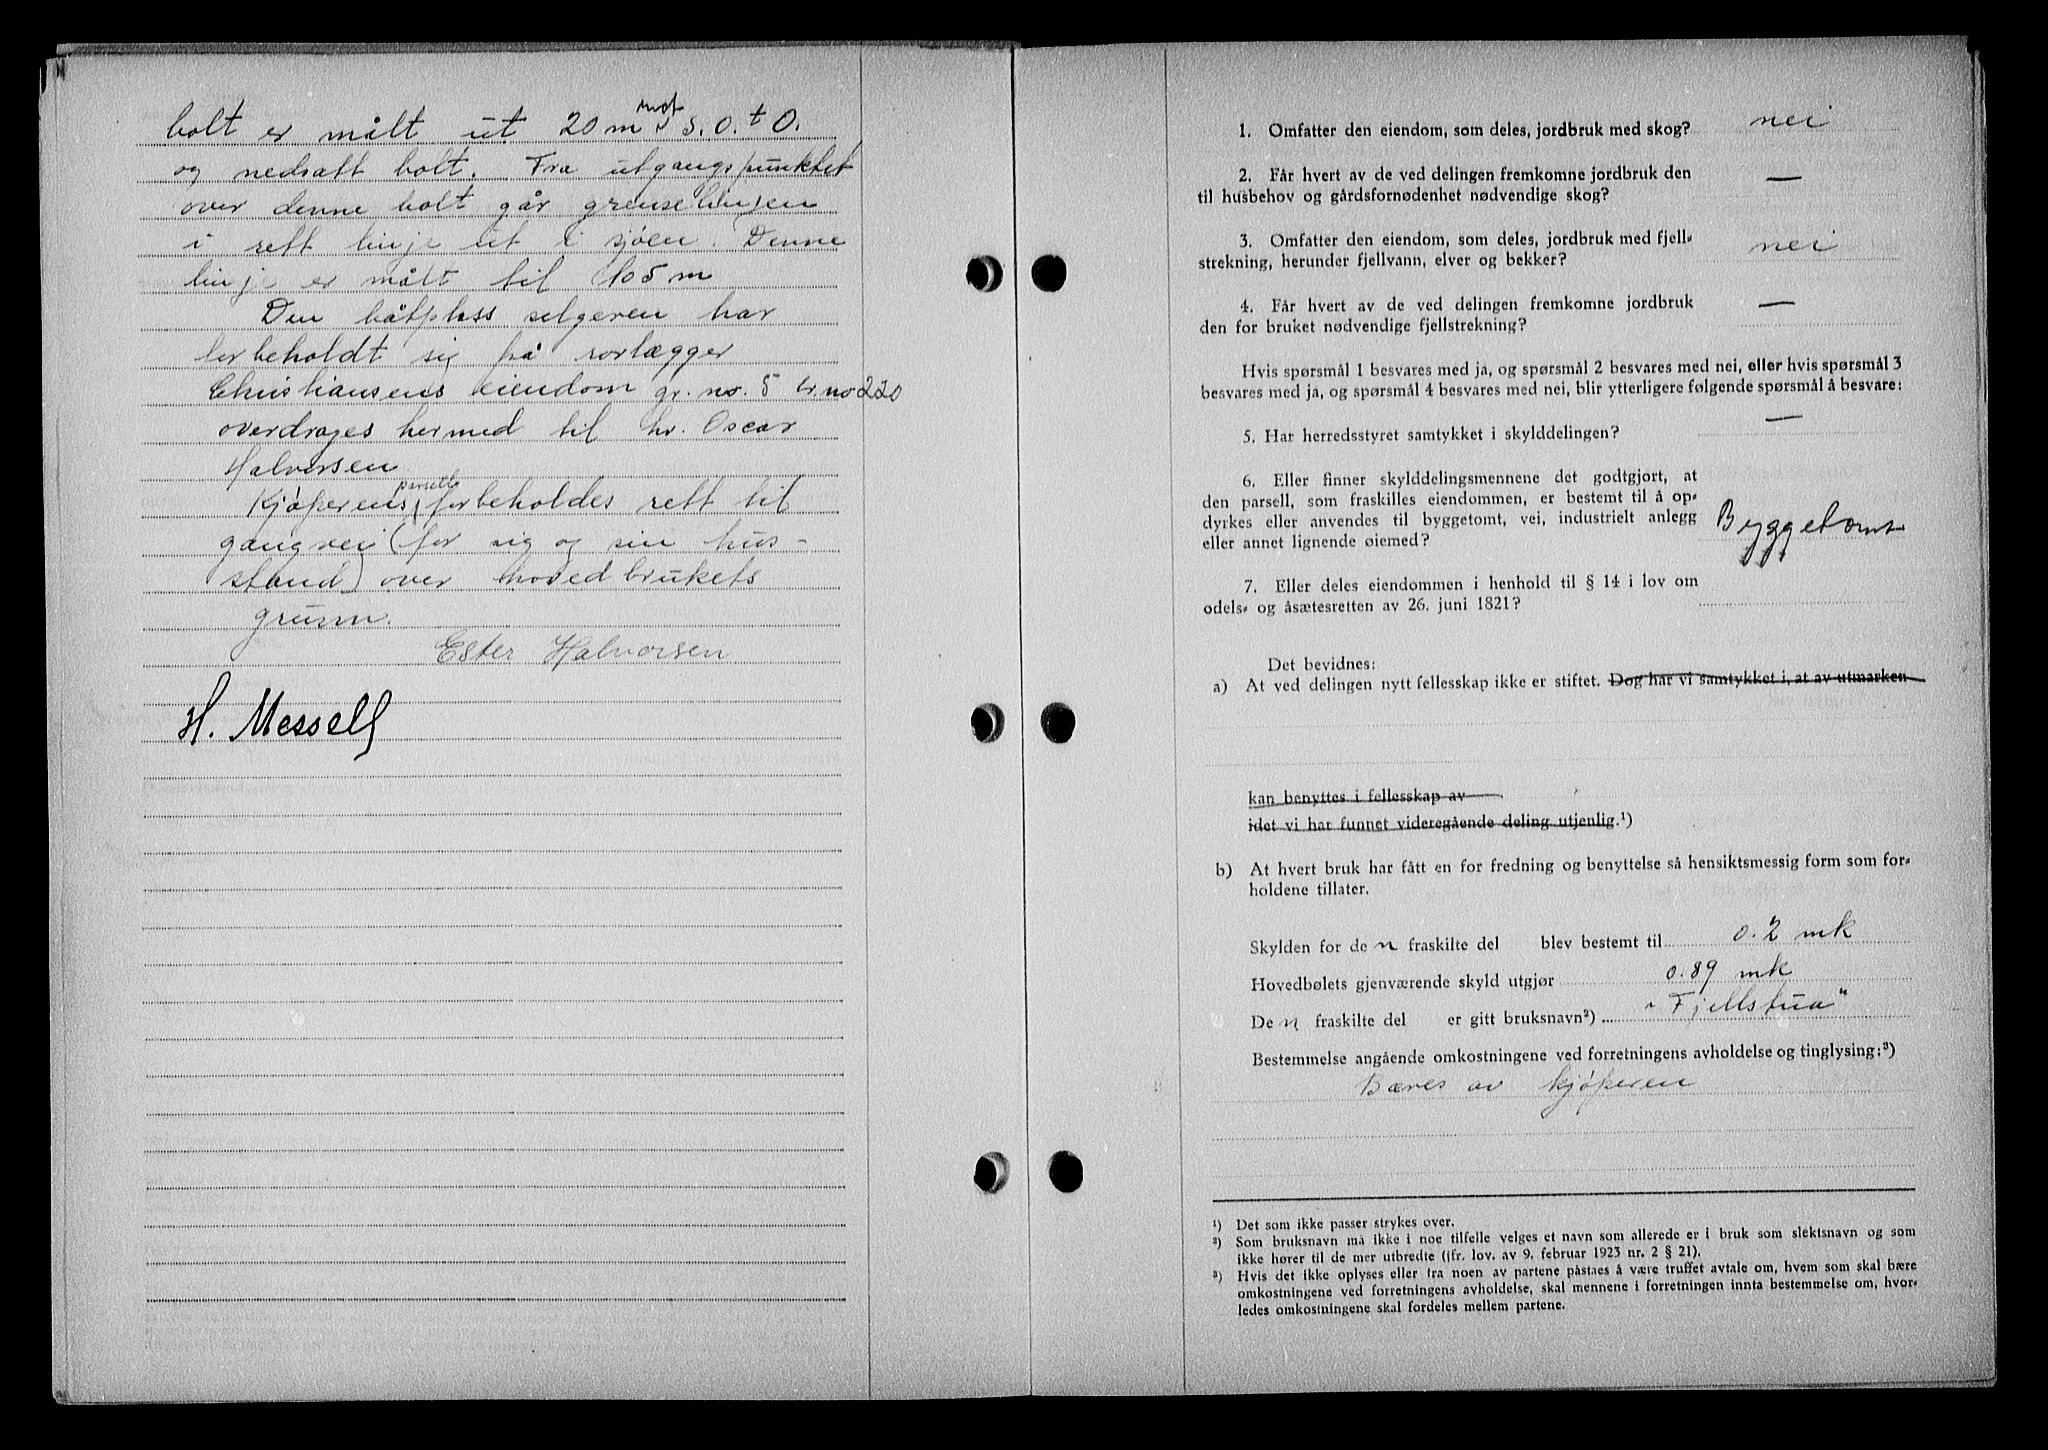 bolt er målt ut 20 m mot S.O.t O.
og nedsatt bolt. Fra utgangspunktet
over denne bolt går grenselinjen
i rett linje ut i sjøen. Denne
linje er målt til 105 m
Den båtplass selgeren har
forbeholdt sig på rørlegger
Christiansens eiendom gr. no. 5 br. no 220
overdrages hermed til hr. Oscar
Halvorsen.
Kjøperens parsell forbeholdes rett til
gangvei (for sig og sin hus-
stand) over hovedbrukets
grunn.
Ester Halvorsen
H. Messell
1. Omfatter den eiendom, som deles, jordbruk med skog? nei
2. Får hvert av de ved delingen fremkomne jordbruk den
til husbehov og gårdsfornødenhet nødvendige skog? —
3. Omfatter den eiendom, som deles, jordbruk med fjell-
strekning, herunder fjellvann, elver og bekker? nei
4. Får hvert av de ved delingen fremkomne jordbruk
den for bruket nødvendige fjellstrekning? —
Hvis spørsmål 1 besvares med ja, og spørsmål 2 besvares med nei, eller hvis spørsmål 3
besvares med ja, og spørsmål 4 besvares med nei, blir ytterligere følgende spørsmål å besvare:
5. Har herredsstyret samtykket i skylddelingen? —
6. Eller finner skylddelingsmennene det godtgjort, at
den parsell, som fraskilles eiendommen, er bestemt til å op-
dyrkes eller anvendes til byggetomt, vei, industrielt anlegg
eller annet lignende øiemed? Byggetomt
7. Eller deles eiendommen i henhold til § 14 i lov om
odels- og åsætesretten av 26. juni 1821?
Det bevidnes:
a) At ved delingen nytt fellesskap ikke er stiftet. Dog har vi samtykket i, at av utmarken
kan benyttes i fellesskap av
idet vi har funnet videregående deling utjenlig.¹)
b) At hvert bruk har fått en for fredning og benyttelse så hensiktsmessig form som for-
holdene tillater.
Skylden for de n fraskilte del blev bestemt til 0.2 mk
Hovedbølets gjenværende skyld utgjør 0.89 mk
De n fraskilte del er gitt bruksnavn²) "Fjellstua"
Bestemmelse angående omkostningene ved forretningens avholdelse og tinglysing:³)
Bæres av kjøperen
¹) Det som ikke passer strykes over.
²) Som bruksnavn må ikke i noe tilfelle velges et navn som allerede er i bruk som slektsnavn og som
ikke hører til de mer utbredte (jfr. lov. av 9. februar 1923 nr. 2 § 21).
³) Hvis det ikke oplyses eller fra noen av partene påstaes å være truffet avtale om, hvem som skal bære
omkostningene ved forretningens avholdelse, skal mennene i forretningen innta bestemmelse om, hvor-
ledes omkostningene skal fordeles mellem partene.